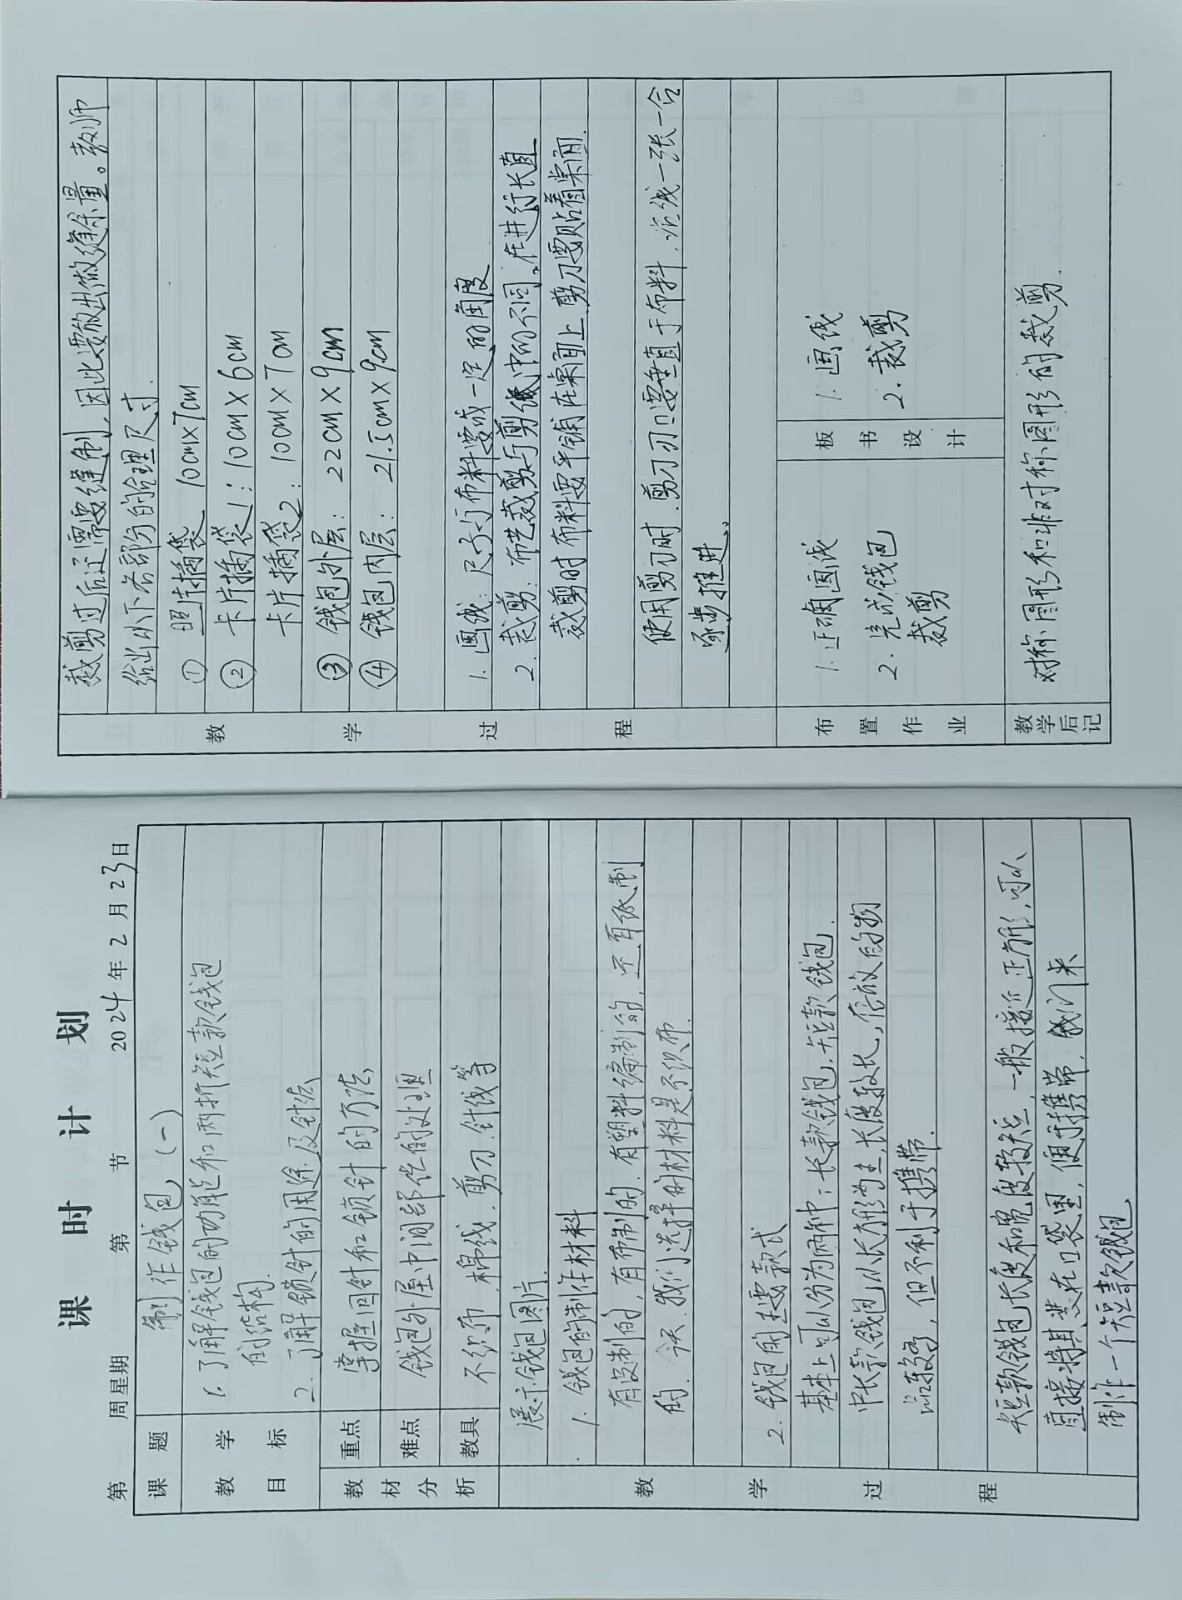 课 时 计 划
第 周星期 第 节 2024年2月23日
课 题
制作钱包（一）
教 学 目 标
1. 了解钱包的功能和两折短款钱包
的结构.
2. 了解锁针的用途及针法
教材分析
重点
掌握回针和锁针的方法
难点
钱包外层中间部位的处理
教具
不织布.棉线.剪刀.针线等
教 学 过 程
展示钱包图片.
1. 钱包的制作材料
有皮制的,有布制的.有塑料编制的,还有纸制
的.今天.我们选择的材料是不织布.
2. 钱包的主要款式
基本上可以分为两种:长款钱包.短款钱包.
中长款钱包以长方形为主,长度较长,存放的物
品较多,但不利于携带.
短款钱包长度和宽度较短,一般接近正方形,可以
直接将其装在口袋里,便于携带,我们来
制作一个短款钱包
教 学 过 程
裁剪过后还需要缝制,因此要放出做缝余量。教师
给出以下各部分的合理尺寸.
① 照片插袋 10cm×7cm
② 卡片插袋1:10cm×6cm
卡片插袋2:10cm×7cm
③ 钱包外层:22cm×9cm
④ 钱包内层:21.5cm×9cm
1. 画线:尺子与布料要成一定的角度
2. 裁剪:布艺裁剪与剪纸中的不同,在进行长直
裁剪时布料要平铺在桌面上,剪刀要贴着桌面.
使用剪刀时.剪刀刃口要垂直于布料.沿线一张一合
逐步推进.
布置作业
1. 正确画线
2. 完成钱包
裁剪
板书设计
1. 画线
2. 裁剪
教学后记
对称图形和非对称图形的裁剪.